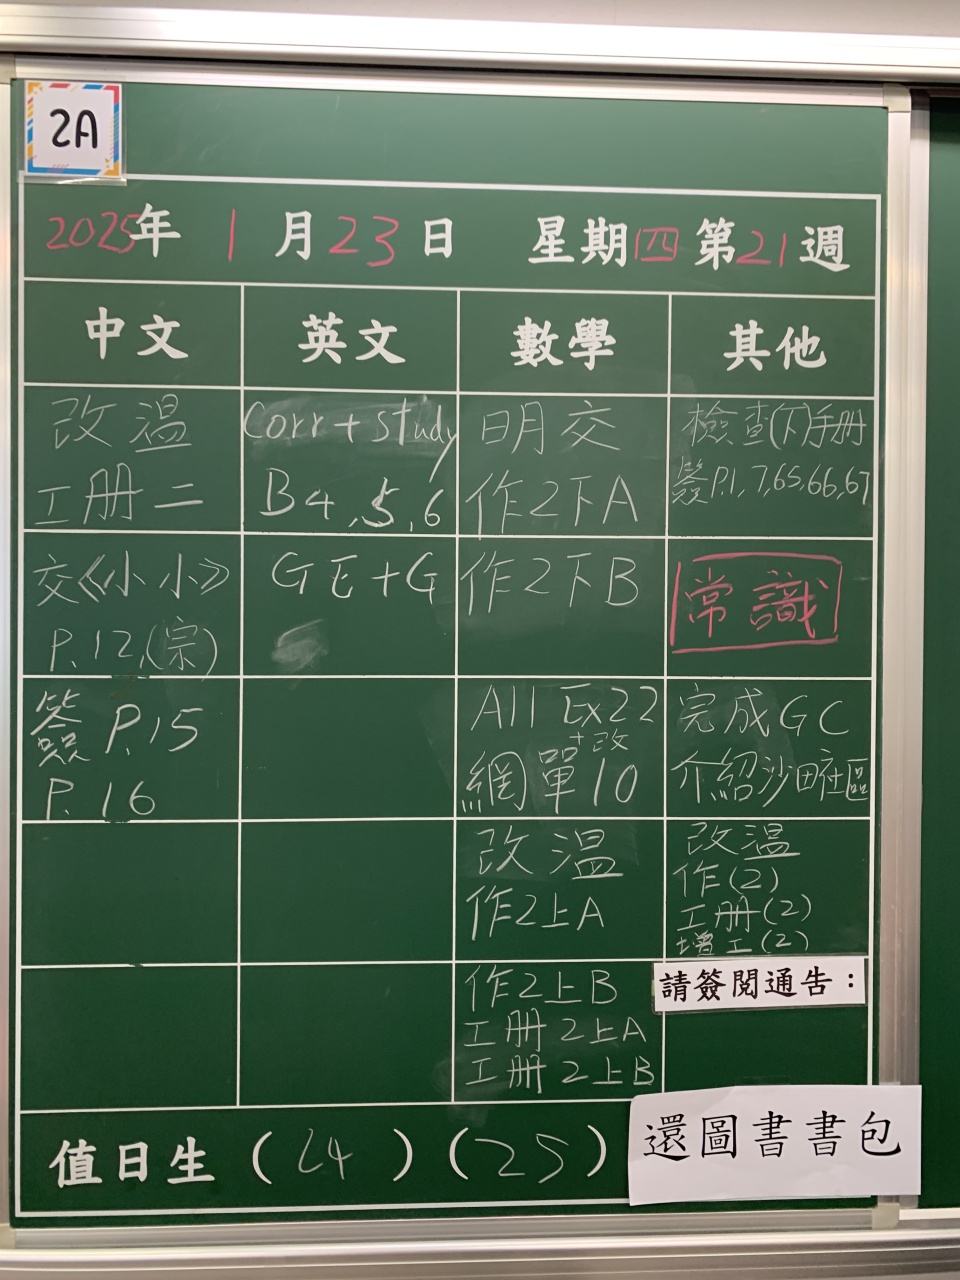 2A
2025年 1月23日 星期四 第21週
中文 英文 數學 其他
改溫
工册二
交《小小》
P.12,(宗)
簽 P.15
P.16
Corr + study
B4,5,6
GE+G
明交
作2下A
作2下B
All Ex22
+改
網單10
改溫
作2上A
作2上B
工册2上A
工册2上B
檢查(下)手册
簽P.1,7,65,66,67
常識
完成GC
介紹沙田社區
改溫
作(2)
工册(2)
增工(2)
請簽閱通告：
值日生 ( 24 ) ( 25 )
還圖書書包